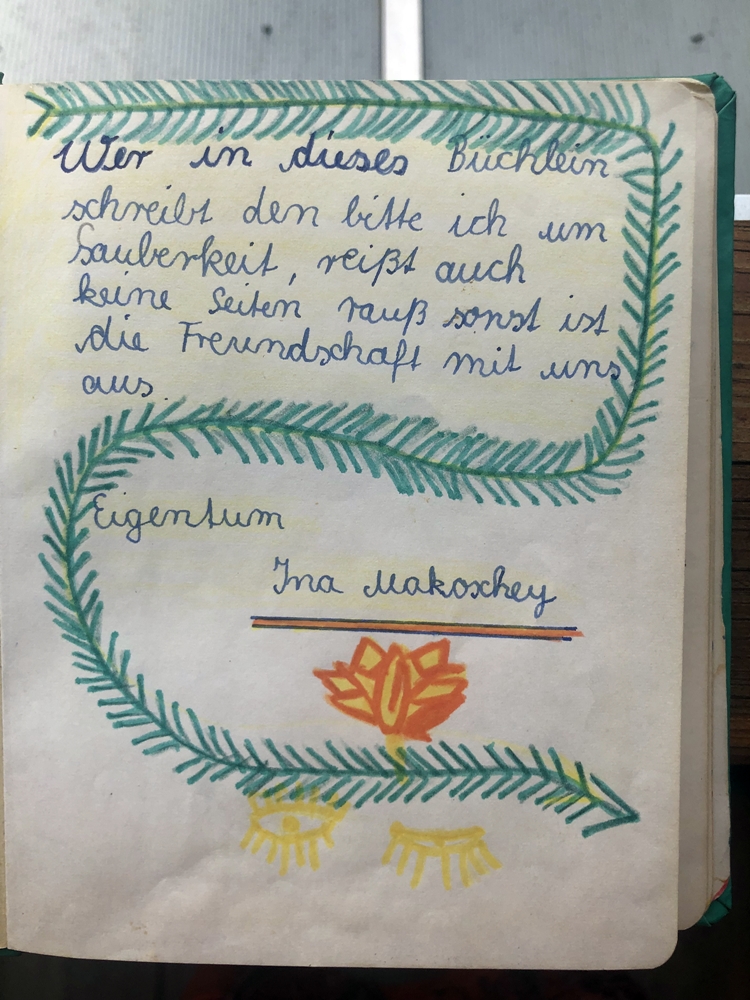 Wer in dieses Büchlein
schreibt den bitte ich um
Sauberkeit, reißt auch
keine Seiten rauß sonst ist
die Freundschaft mit uns
aus.
Eigentum
Ina Makoschey